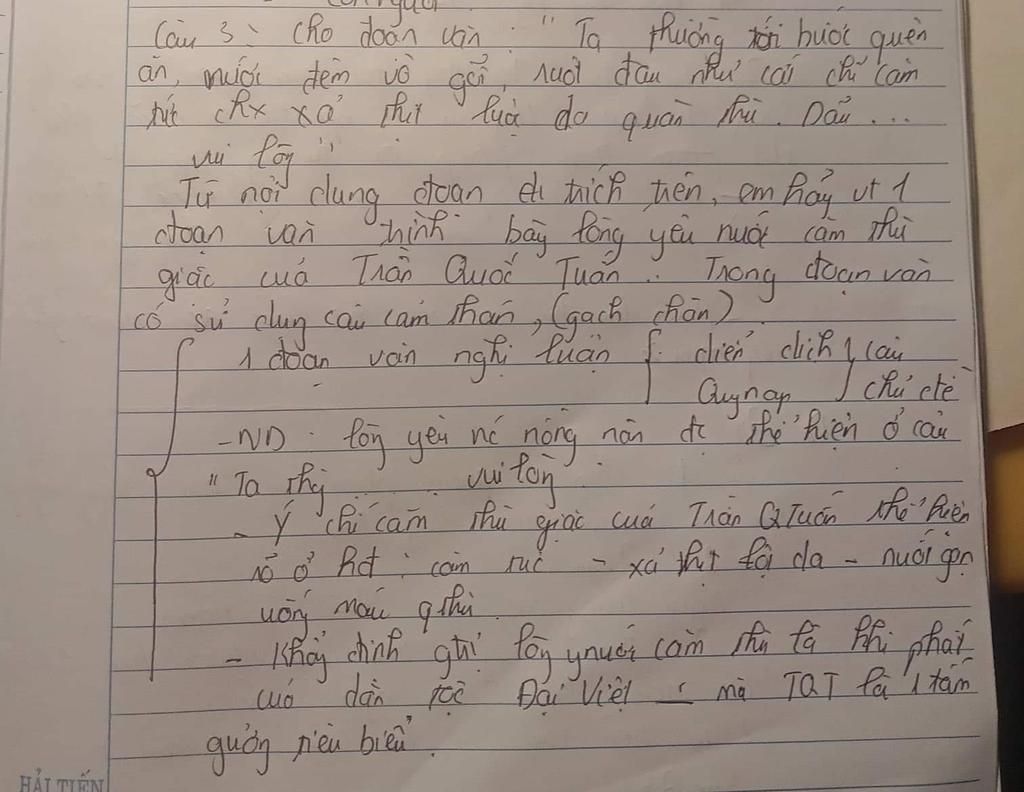 Câu 3: Cho đoạn văn: "Ta thường tới bước quên
ăn, nước đêm vỗ gối, ruột đau như cắt chỉ căm
tức chx xả thịt luột da quân thù. Dẫu...
vui lòg"
Từ nội dung đoạn đt trích trên, em hãy vt 1
đoạn văn trình bày lòng yêu nước căm thù
giặc của Trần Quốc Tuấn. Trong đoạn văn
có sử dụng câu cảm thán, (gạch chân)
1 đoạn văn nghị luận { diễn dịch } câu
Quy nạp } chủ đề
- ND: lòg yêu nc nồng nàn đc thể hiện ở câu
"Ta thg ..... vui lòg
- Ý chí căm thù giặc của Trần Q Tuấn thể hiện
rõ ở hđ: căm tức - xả thịt lột da - nuốt gan
uống máu q thù
- Khẳg định gtrị lòg y nước căm thù là khí phái
của dân tộc Đại Việt - mà TQT là 1 tấm
gương tiêu biểu.
HẢI TIẾN